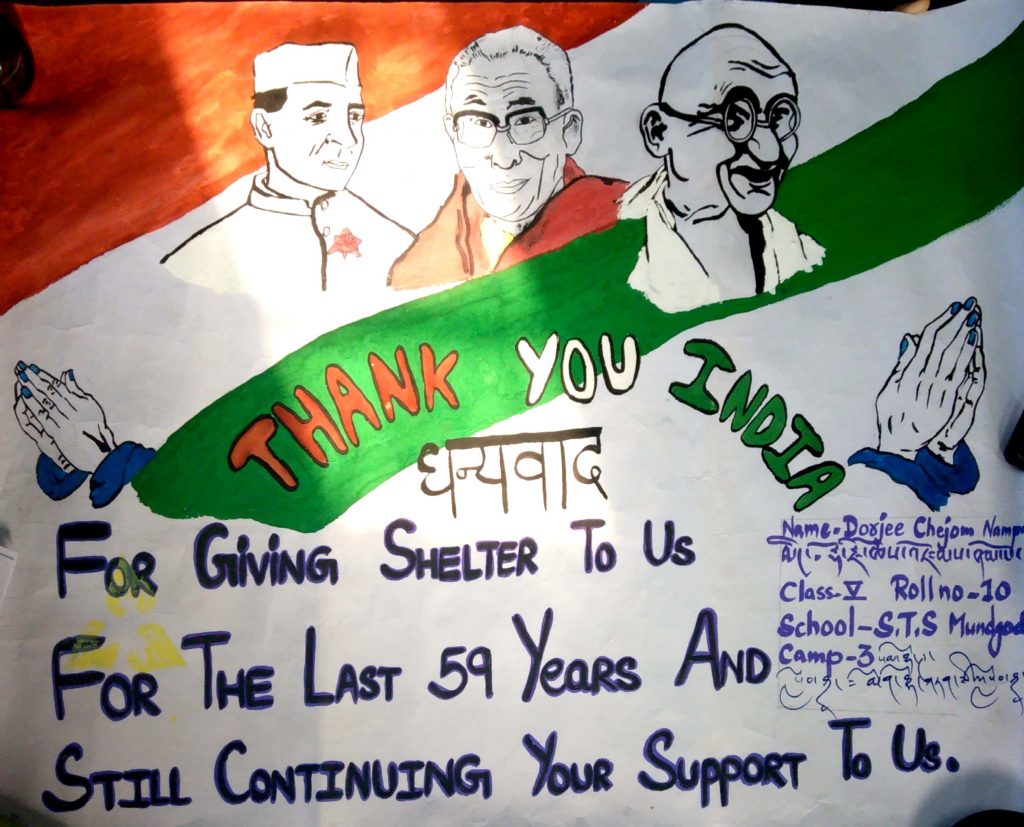 THANK YOU INDIA
धन्यवाद
FOR GIVING SHELTER TO US
FOR THE LAST 59 YEARS AND
STILL CONTINUING YOUR SUPPORT TO US.
Name - Dorjee Chejom
Class - V Roll no - 10
School - S.T.S Mundgod
Camp - 3